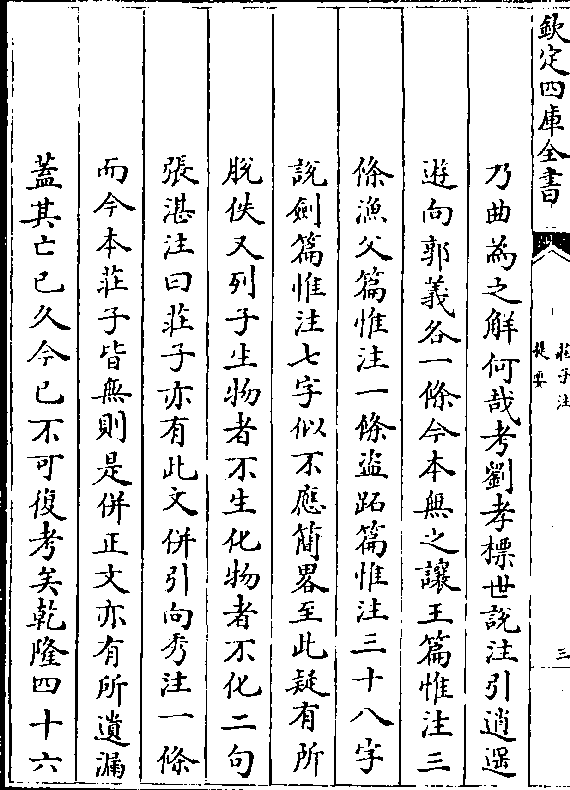 欽定四庫全書
莊子注
提要
三
乃曲為之解何哉考劉孝標世說注引逍遥
遊向郭義各一條今本無之讓王篇惟注三
條漁父篇惟注一條盜跖篇惟注三十八字
說劍篇惟注七字似不應簡畧至此疑有所
脫佚又列子生物者不生化物者不化二句
張湛注曰莊子亦有此文併引向秀注一條
而今本莊子皆無則是併正文亦有所遺漏
蓋其亡已久今已不可復考矣乾隆四十六